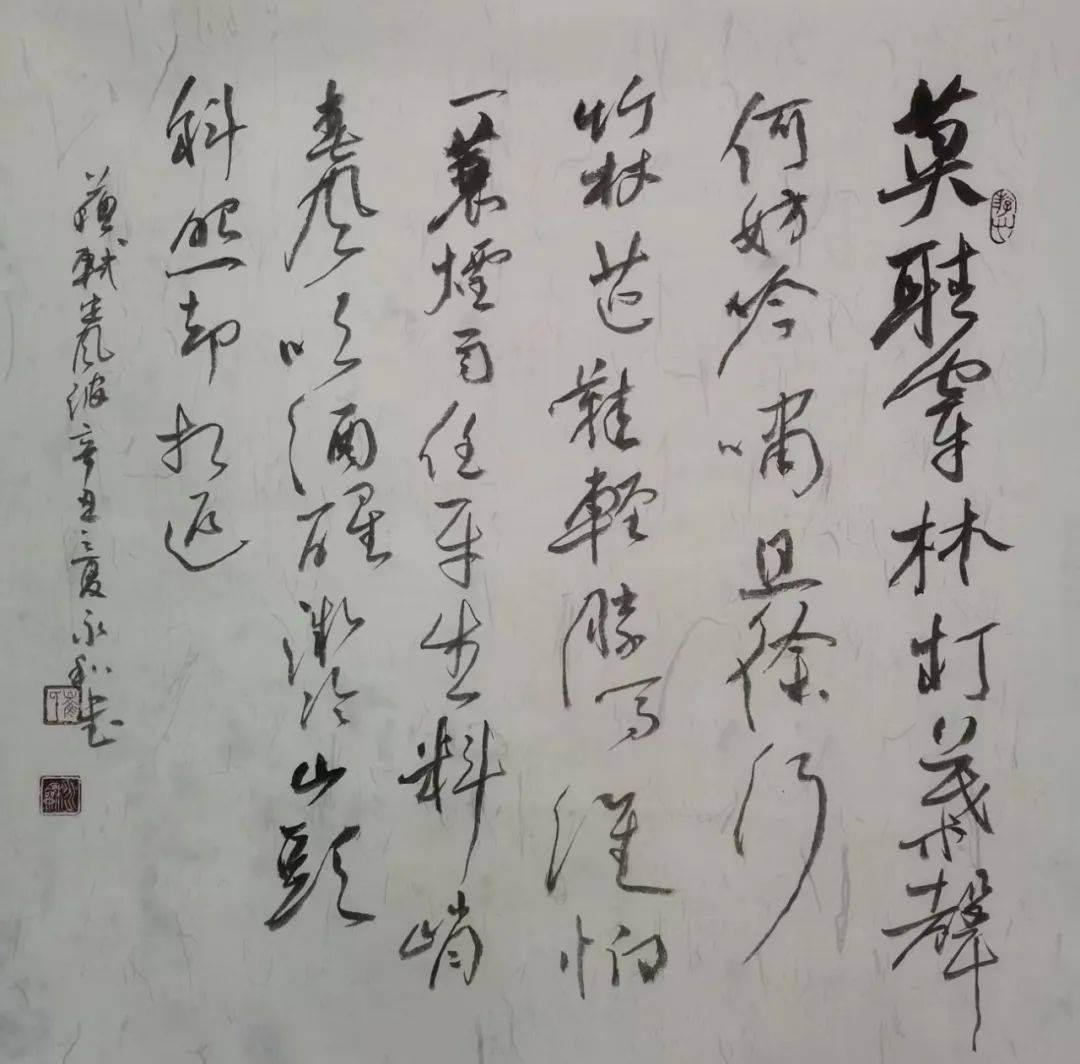 莫聽穿林打葉聲
何妨吟嘯且徐行
竹杖芒鞋輕勝馬誰怕
一蓑煙雨任平生料峭
春風吹酒醒微冷山頭
斜照却相迎
蘇軾定風波辛丑之夏永和書